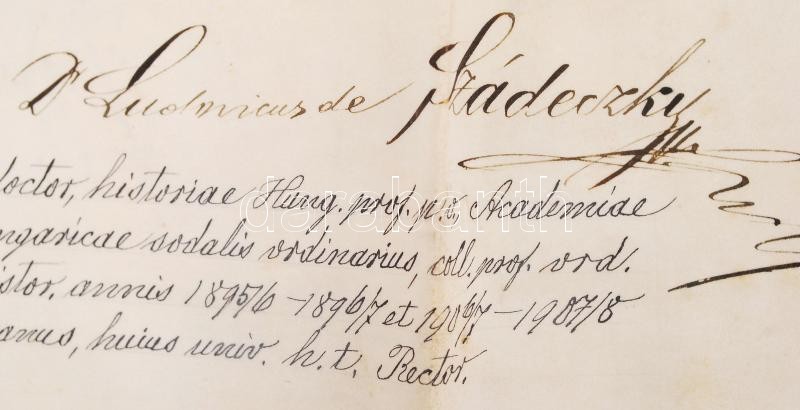 Dr Ludovicus de Szádeczky
doctor, historiae Hung. prof. p. o., Academiae
ngaricae sodalis ordinarius, coll. prof. ord.
istor. annis 1895/6 - 1896/7 et 1906/7 - 1907/8
anus, huius univ. h. t. Rector.
darabanth